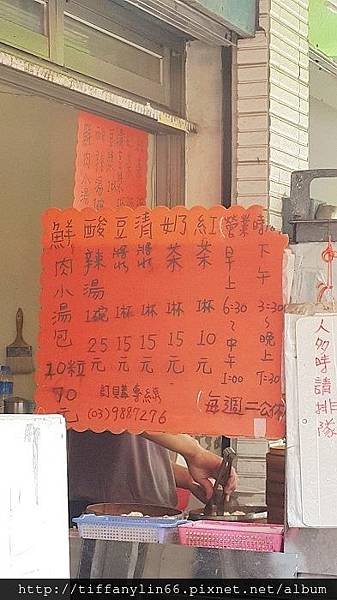 鮮肉小湯包10粒70元
酸辣湯1碗25元
豆漿1杯15元
清漿1杯15元
奶茶1杯15元
紅茶1杯10元
(營業時
早上6:30~中午1:00
下午3:30~晚上7:30
(每週二公休
訂購專線
(03)9887276
人多時請排隊
鮮肉小湯
http://tiffanylin66.pixnet.net/album